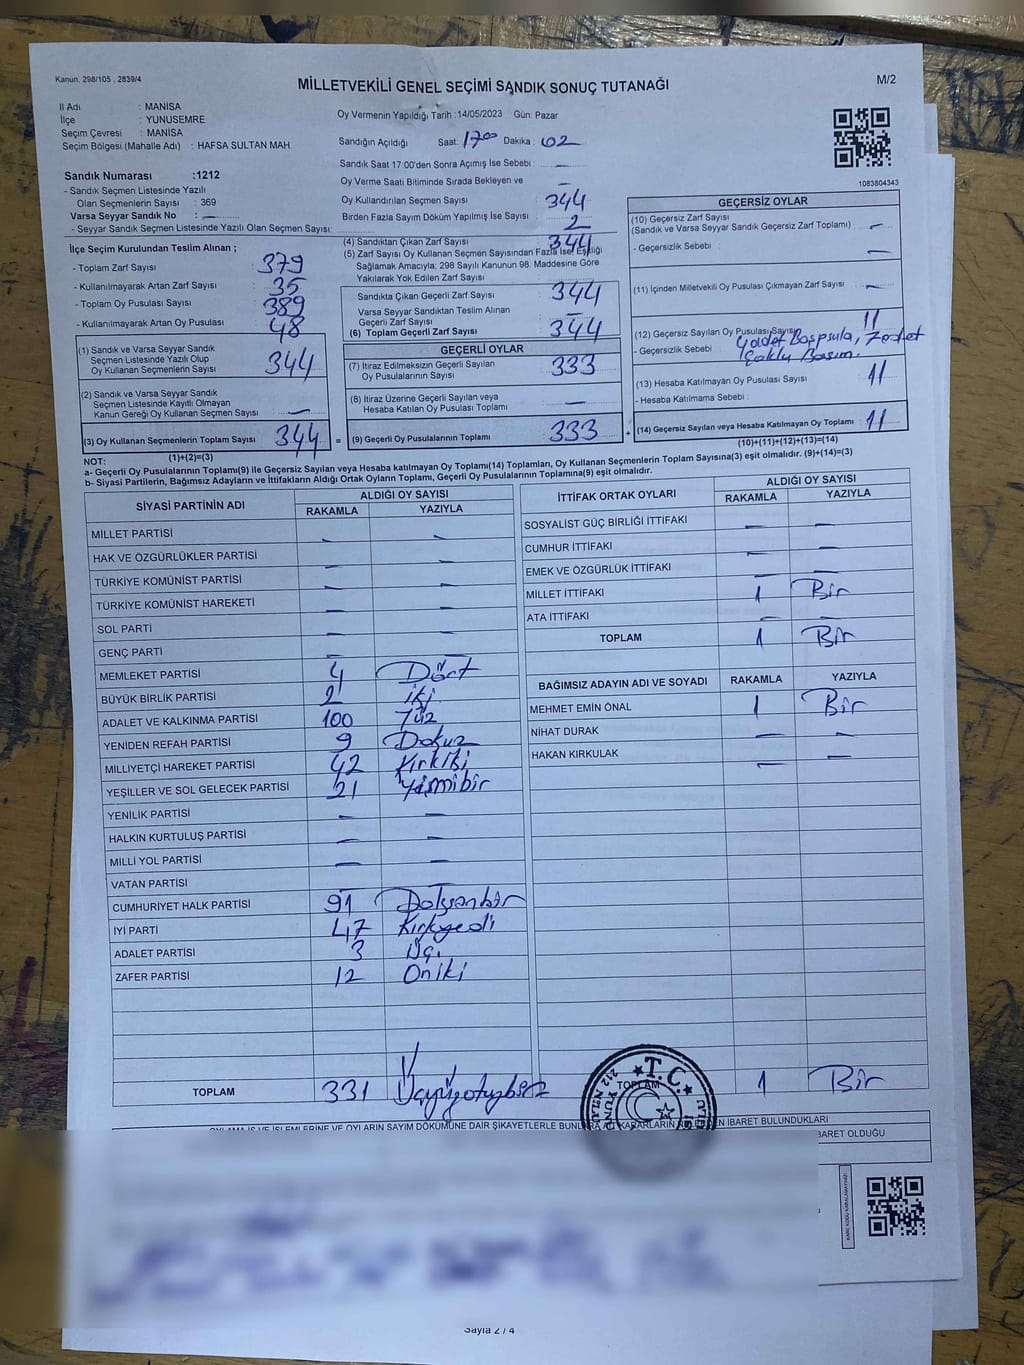 Kanun. 298/105 , 2839/4
MİLLETVEKİLİ GENEL SEÇİMİ SANDIK SONUÇ TUTANAĞI
M/2
İl Adı : MANİSA
İlçe : YUNUSEMRE
Seçim Çevresi : MANİSA
Seçim Bölgesi (Mahalle Adı) : HAFSA SULTAN MAH.
Sandık Numarası :1212
- Sandık Seçmen Listesinde Yazılı
Olan Seçmenlerin Sayısı : 369
Varsa Seyyar Sandık No : —
- Seyyar Sandık Seçmen Listesinde Yazılı Olan Seçmen Sayısı:
Oy Vermenin Yapıldığı Tarih :14/05/2023 Gün: Pazar
Sandığın Açıldığı Saat: 17 00 Dakika : 02
Sandık Saat 17:00'den Sonra Açımış İse Sebebi : —
Oy Verme Saati Bitiminde Sırada Bekleyen ve
Oy Kullandırılan Seçmen Sayısı — 344
Birden Fazla Sayım Döküm Yapılmış İse Sayısı : 2
1083804343
İlçe Seçim Kurulundan Teslim Alınan ;
- Toplam Zarf Sayısı 379
- Kullanılmayarak Artan Zarf Sayısı : 35
- Toplam Oy Pusulası Sayısı : 389
- Kullanılmayarak Artan Oy Pusulası : 48
(1) Sandık ve Varsa Seyyar Sandık
Seçmen Listesinde Yazılı Olup
Oy Kullanan Seçmenlerin Sayısı 344
(2) Sandık ve Varsa Seyyar Sandık
Seçmen Listesinde Kayıtlı Olmayan
Kanun Gereği Oy Kullanan Seçmen Sayısı : —
(3) Oy Kullanan Seçmenlerin Toplam Sayısı 344 =
(1)+(2)=(3)
(4) Sandıktan Çıkan Zarf Sayısı 344
(5) Zarf Sayısı Oy Kullanan Seçmen Sayısından Fazla İse, Eşitliği
Sağlamak Amacıyla; 298 Sayılı Kanunun 98. Maddesine Göre
Yakılarak Yok Edilen Zarf Sayısı
Sandıkta Çıkan Geçerli Zarf Sayısı 344
Varsa Seyyar Sandıktan Teslim Alınan
Geçerli Zarf Sayısı : —
(6) Toplam Geçerli Zarf Sayısı : 344
GEÇERLİ OYLAR
(7) İtiraz Edilmeksizin Geçerli Sayılan
Oy Pusulalarının Sayısı : 333
(8) İtiraz Üzerine Geçerli Sayılan veya
Hesaba Katılan Oy Pusulası Toplamı : —
(9) Geçerli Oy Pusulalarının Toplamı 333 +
GEÇERSİZ OYLAR
(10) Geçersiz Zarf Sayısı
(Sandık ve Varsa Seyyar Sandık Geçersiz Zarf Toplamı) : —
- Geçersizlik Sebebi : —
(11) İçinden Milletvekili Oy Pusulası Çıkmayan Zarf Sayısı : —
(12) Geçersiz Sayılan Oy Pusulası Sayısı 11
- Geçersizlik Sebebi 4 adet Boş pusula, 7 adet
Çoklu Basım.
(13) Hesaba Katılmayan Oy Pusulası Sayısı 11
- Hesaba Katılmama Sebebi :
(14) Geçersiz Sayılan veya Hesaba Katılmayan Oy Toplamı : 11
(10)+(11)+(12)+(13)=(14)
NOT:
a- Geçerli Oy Pusulalarının Toplamı(9) ile Geçersiz Sayılan veya Hesaba katılmayan Oy Toplamı(14) Toplamları, Oy Kullanan Seçmenlerin Toplam Sayısına(3) eşit olmalıdır. (9)+(14)=(3)
b- Siyasi Partilerin, Bağımsız Adayların ve İttifakların Aldığı Ortak Oyların Toplamı, Geçerli Oy Pusulalarının Toplamına(9) eşit olmalıdır.
SİYASİ PARTİNİN ADI ALDIĞI OY SAYISI
RAKAMLA YAZIYLA
MİLLET PARTİSİ — —
HAK VE ÖZGÜRLÜKLER PARTİSİ — —
TÜRKİYE KOMÜNİST PARTİSİ — —
TÜRKİYE KOMÜNİST HAREKETİ — —
SOL PARTİ — —
GENÇ PARTİ —
MEMLEKET PARTİSİ 4 Dört
BÜYÜK BİRLİK PARTİSİ 2 iki
ADALET VE KALKINMA PARTİSİ 100 Yüz
YENİDEN REFAH PARTİSİ 9 Dokuz
MİLLİYETÇİ HAREKET PARTİSİ 42 Kırkiki
YEŞİLLER VE SOL GELECEK PARTİSİ 21 Yirmibir
YENİLİK PARTİSİ — —
HALKIN KURTULUŞ PARTİSİ — —
MİLLİ YOL PARTİSİ — —
VATAN PARTİSİ — —
CUMHURİYET HALK PARTİSİ 91 Doksanbir
İYİ PARTİ 47 Kırkyedi
ADALET PARTİSİ 3 Üç.
ZAFER PARTİSİ 12 Oniki
TOPLAM 331
İTTİFAK ORTAK OYLARI ALDIĞI OY SAYISI
RAKAMLA YAZIYLA
SOSYALİST GÜÇ BİRLİĞİ İTTİFAKI — —
CUMHUR İTTİFAKI — —
EMEK VE ÖZGÜRLÜK İTTİFAKI — —
MİLLET İTTİFAKI 1 Bir
ATA İTTİFAKI — —
TOPLAM 1 Bir
BAĞIMSIZ ADAYIN ADI VE SOYADI RAKAMLA YAZIYLA
MEHMET EMİN ÖNAL 1 Bir
NİHAT DURAK — —
HAKAN KIRKULAK — —
TOPLAM 1 Bir
T.C.
OYLAMA İŞ VE İŞLEMLERİNE VE OYLARIN SAYIM DÖKÜMÜNE DAİR ŞİKAYETLERLE BUNLARA AİT KARARLARIN İBARET BULUNDUKLARI
İBARET OLDUĞU
Sayfa 2 / 4